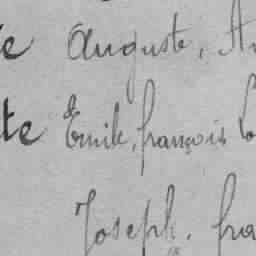 e Auguste, A
te Emile, françois
Joseph. fra